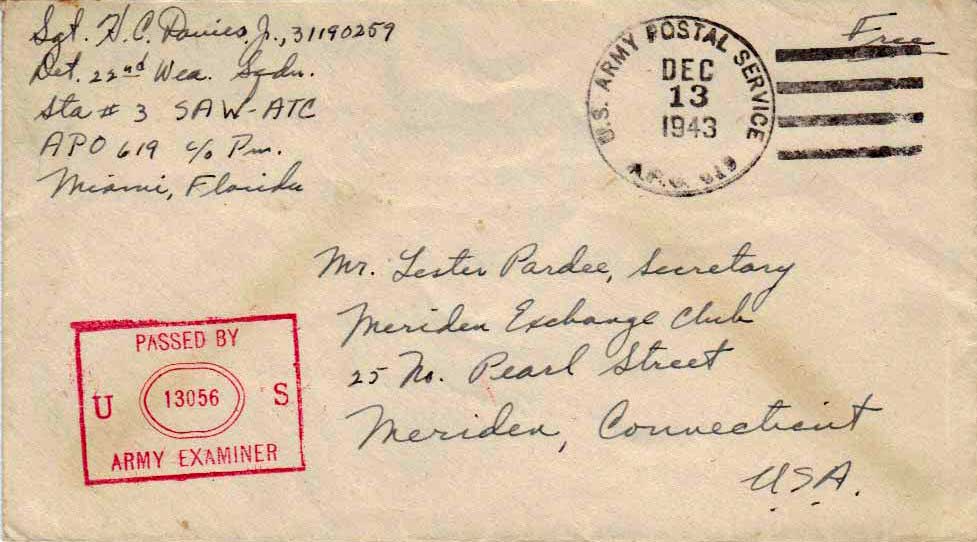 Sgt. H. C. Davies, Jr., 31190259
Det. 22nd Wea. Sqdn.
Sta # 3 SAW-ATC
APO 619 c/o Pm.
Miami, Florida
U.S. ARMY POSTAL SERVICE
DEC
13
1943
A.P.O. 619
Free
Mr. Lester Pardee, Secretary
Meriden Exchange Club
25 No. Pearl Street
Meriden, Connecticut
USA.
PASSED BY
U 13056 S
ARMY EXAMINER